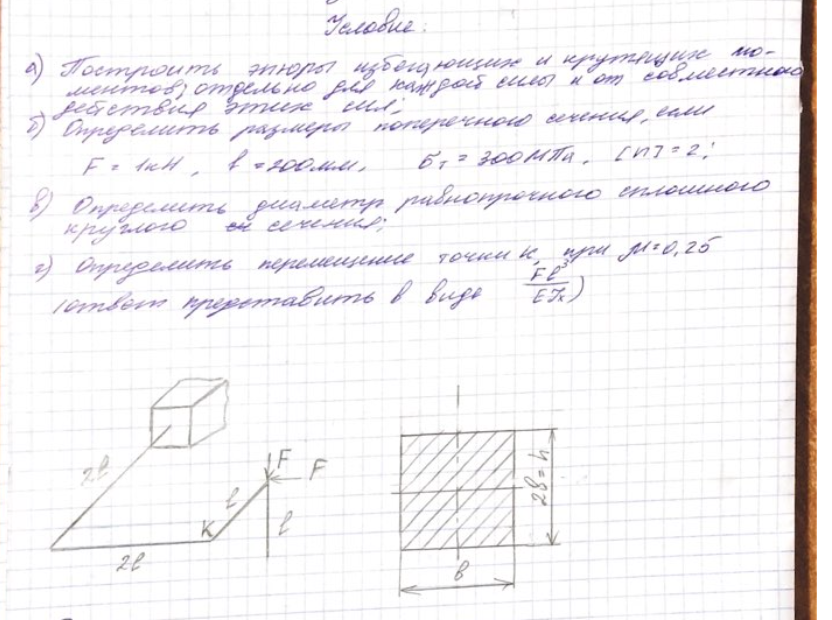 Условие:
а) Построить эпюры изгибающих и крутящих мо-
ментов, отдельно для каждой силы и от совместного
действия этих сил;
б) Определить размеры поперечного сечения, если
F = 1кН, l = 200мм, σт = 300МПа, [n] = 2;
в) Определить диаметр равнопрочного сплошного
круглого сечения;
г) Определить перемещение точки К, при μ=0,25
(ответ представить в виде Fl³/EJx)
F
F
2l
l
К
l
2l
2в = h
в